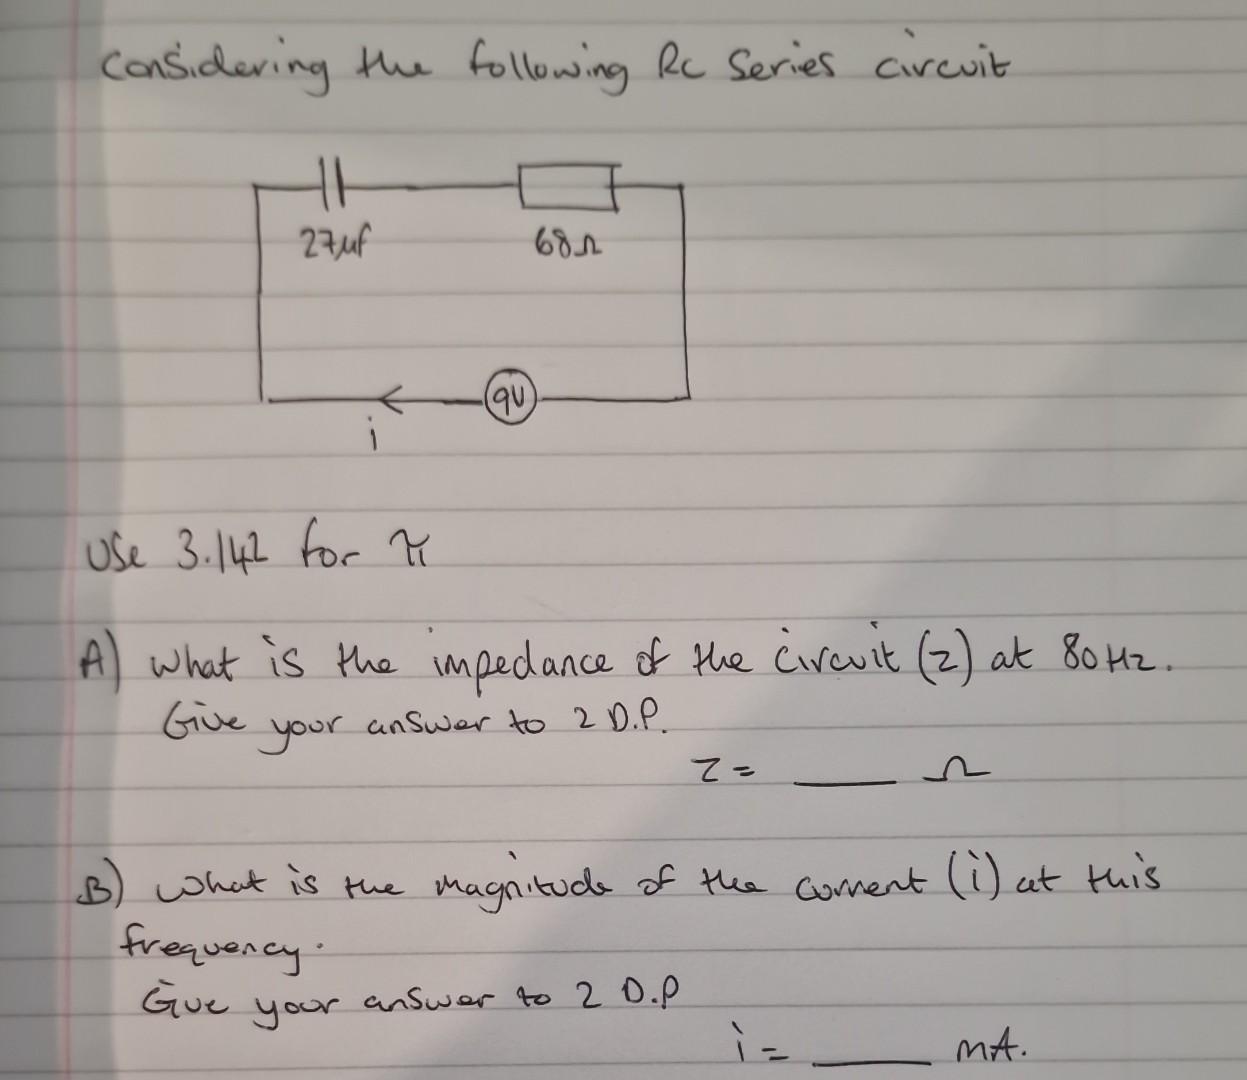 Considering the following RC Series circuit
27μf
68Ω
9V
i
Use 3.142 for π
A) What is the impedance of the circuit (z) at 80Hz.
Give your answer to 2 D.P.
z = ____ Ω
B) What is the magnitude of the current (i) at this
frequency.
Give your answer to 2 D.P
i = ____ mA.